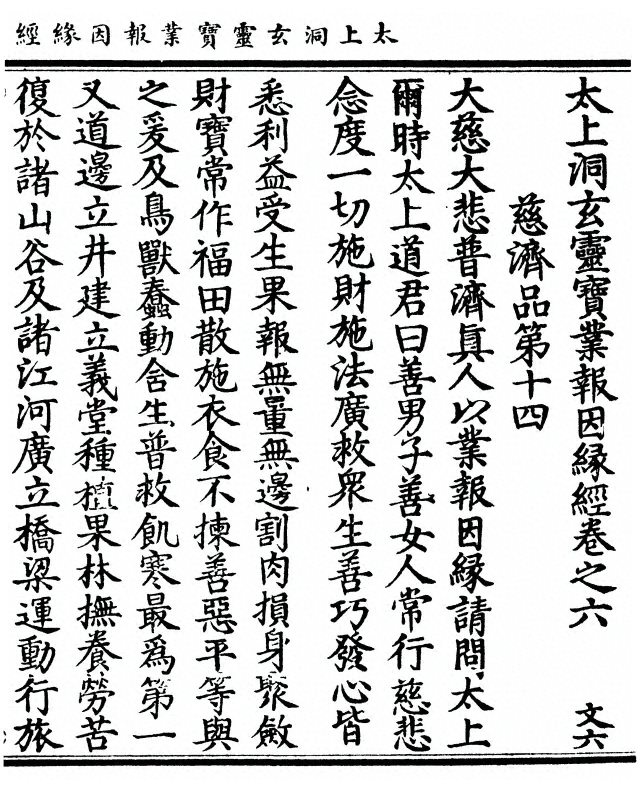 太上洞玄靈寶業報因緣經
太上洞玄靈寶業報因縁經卷之六 文六
慈濟品第十四
大慈大悲普濟真人以業報因縁請問太上
爾時太上道君曰善男子善女人常行慈悲
念度一切施財施法廣救衆生善巧發心皆
悉利益受生果報無量無邊割肉損身聚斂
財寶常作福田散施衣食不揀善惡平等與
之爰及鳥獸蠢動含生普救飢寒最爲第一
又道邊立井建立義堂種植果林撫養勞苦
復於諸山谷及諸江河廣立橋梁運動行旅